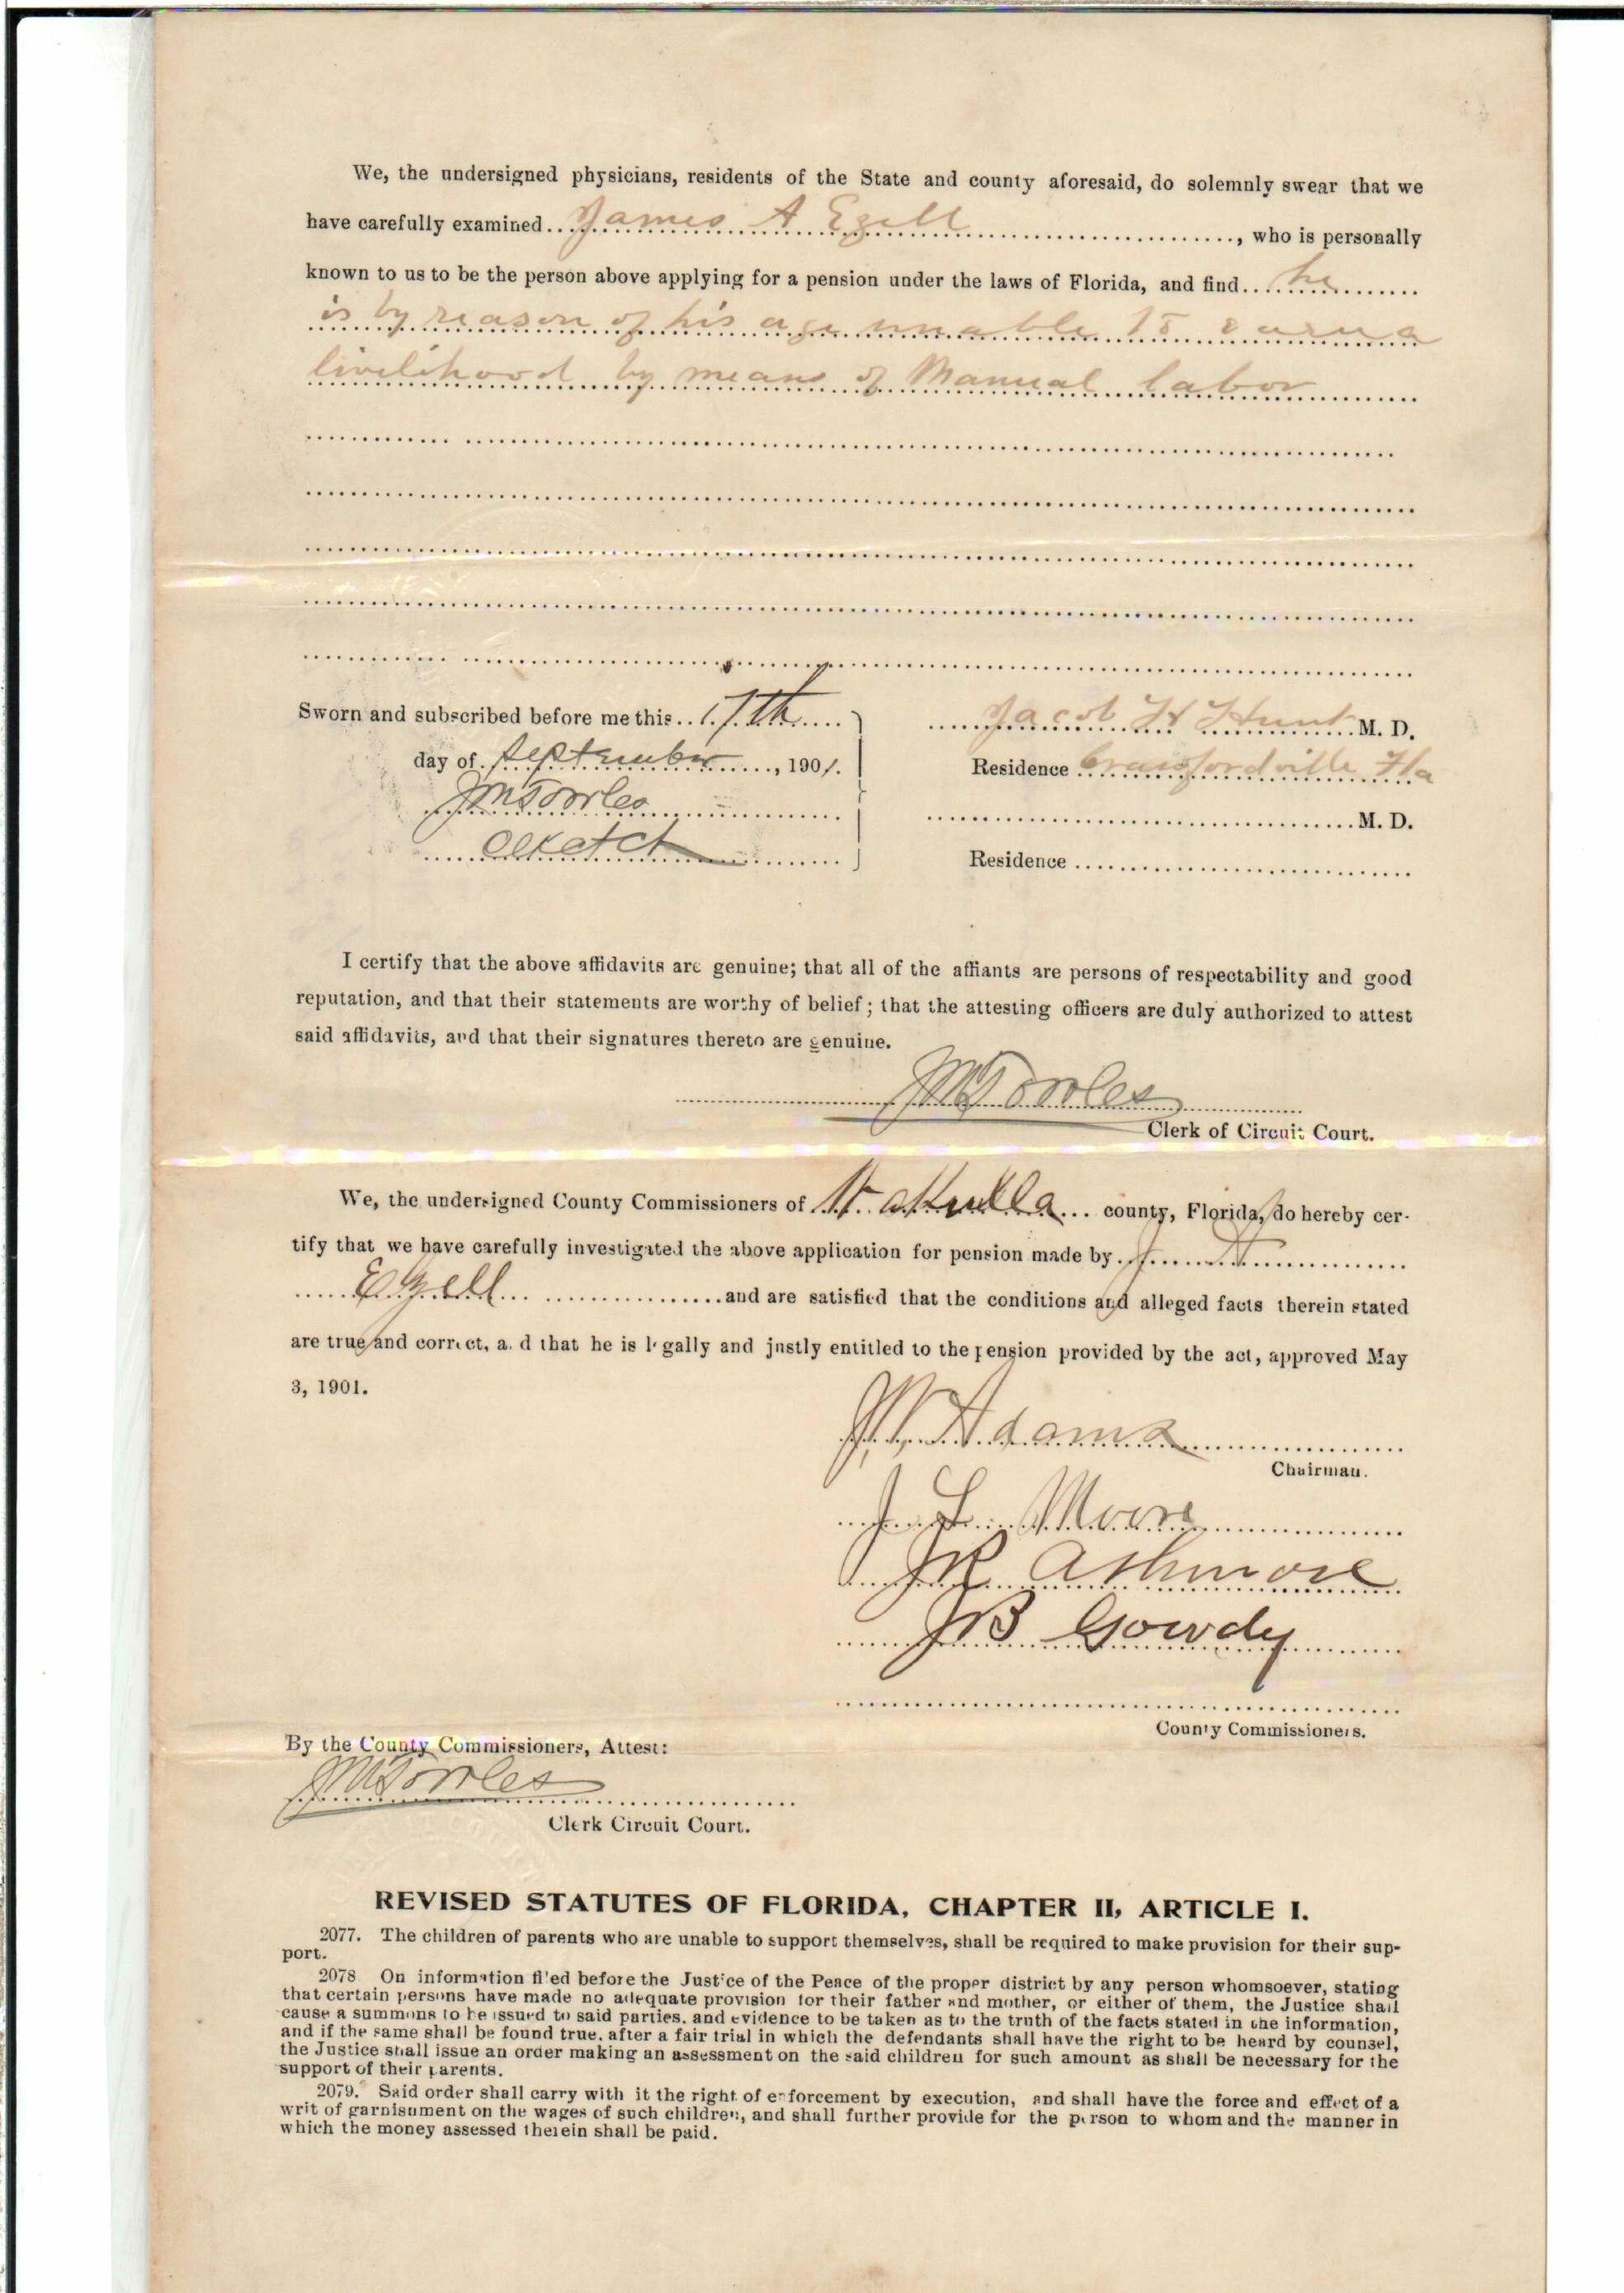 We, the undersigned physicians, residents of the State and county aforesaid, do solemnly swear that we
have carefully examined James A Ezell, who is personally
known to us to be the person above applying for a pension under the laws of Florida, and find he
is by reason of his age unable to earn a
livelihood by means of Manual labor
Sworn and subscribed before me this 17th
day of September, 1901.
JMTowles
Clk Ct Ct
Jacob H Hunt M. D.
Residence Crawfordville Fla
M. D.
Residence
I certify that the above affidavits are genuine; that all of the affiants are persons of respectability and good
reputation, and that their statements are worthy of belief; that the attesting officers are duly authorized to attest
said affidavits, and that their signatures thereto are genuine.
JMTowles
Clerk of Circuit Court.
We, the undersigned County Commissioners of Wakulla county, Florida, do hereby cer-
tify that we have carefully investigated the above application for pension made by J A
Ezell and are satisfied that the conditions and alleged facts therein stated
are true and correct, and that he is legally and justly entitled to the pension provided by the act, approved May
3, 1901.
Adams
Chairman.
J L Moore
JR Ashmore
JB Gowdy
County Commissioners.
By the County Commissioners, Attest:
JMTowles
Clerk Circuit Court.
REVISED STATUTES OF FLORIDA, CHAPTER II, ARTICLE I.
2077. The children of parents who are unable to support themselves, shall be required to make provision for their sup-
port.
2078 On information filed before the Justice of the Peace of the proper district by any person whomsoever, stating
that certain persons have made no adequate provision for their father and mother, or either of them, the Justice shall
cause a summons to be issued to said parties, and evidence to be taken as to the truth of the facts stated in the information,
and if the same shall be found true, after a fair trial in which the defendants shall have the right to be heard by counsel,
the Justice shall issue an order making an assessment on the said children for such amount as shall be necessary for the
support of their parents.
2079. Said order shall carry with it the right of enforcement by execution, and shall have the force and effect of a
writ of garnishment on the wages of such children, and shall further provide for the person to whom and the manner in
which the money assessed therein shall be paid.